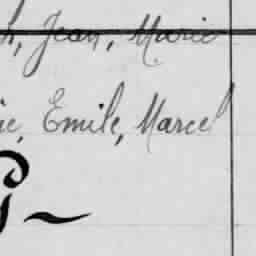 h, Jean, Marie
ie, Emile, Marcel